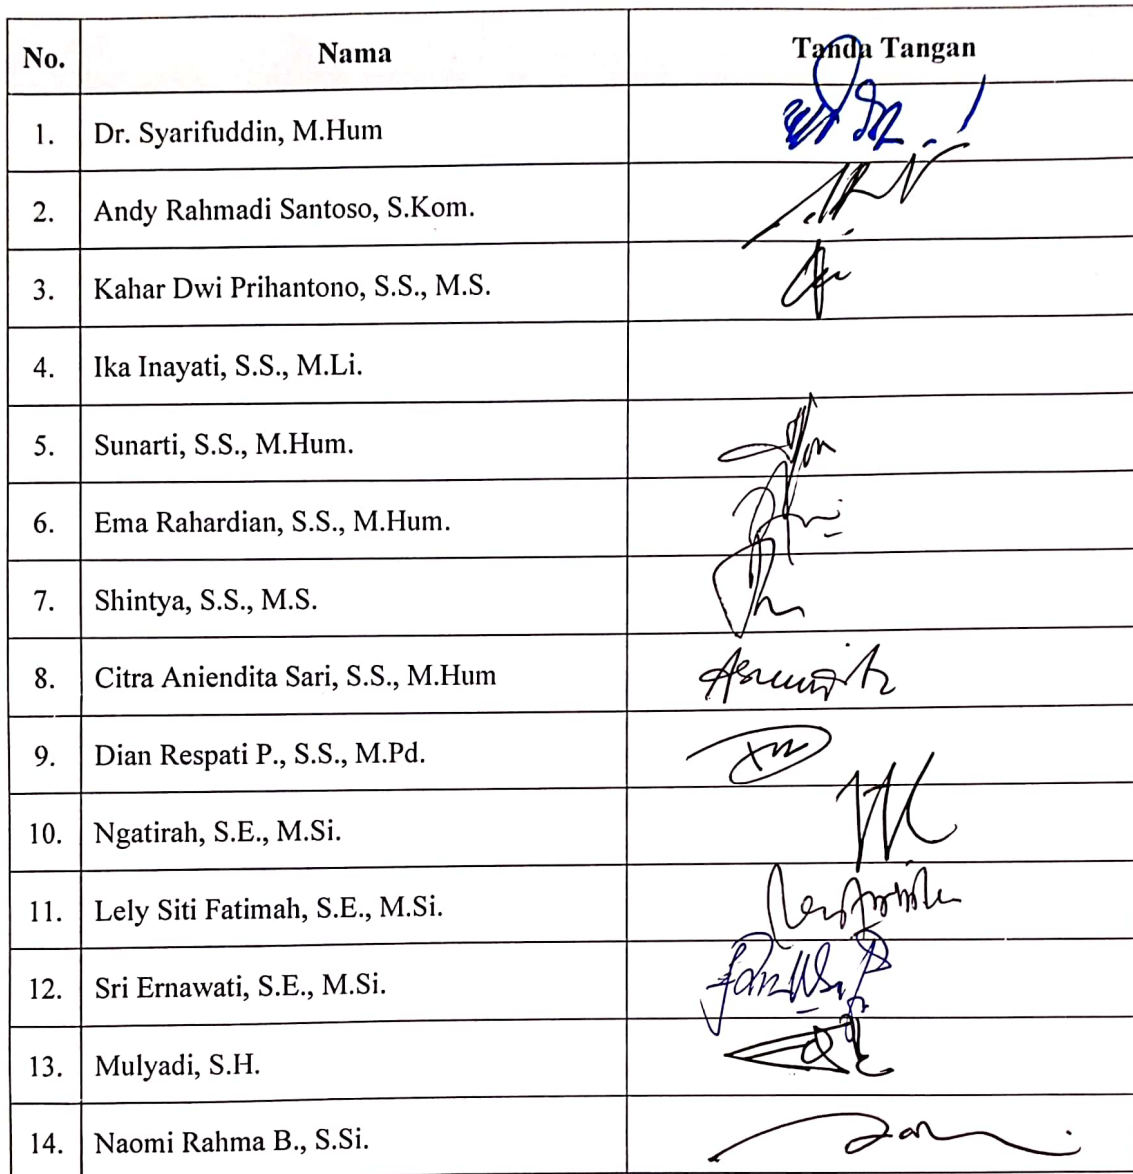 No. Nama Tanda Tangan
1. Dr. Syarifuddin, M.Hum
2. Andy Rahmadi Santoso, S.Kom.
3. Kahar Dwi Prihantono, S.S., M.S.
4. Ika Inayati, S.S., M.Li.
5. Sunarti, S.S., M.Hum.
6. Ema Rahardian, S.S., M.Hum.
7. Shintya, S.S., M.S.
8. Citra Aniendita Sari, S.S., M.Hum
9. Dian Respati P., S.S., M.Pd.
10. Ngatirah, S.E., M.Si.
11. Lely Siti Fatimah, S.E., M.Si.
12. Sri Ernawati, S.E., M.Si.
13. Mulyadi, S.H.
14. Naomi Rahma B., S.Si.